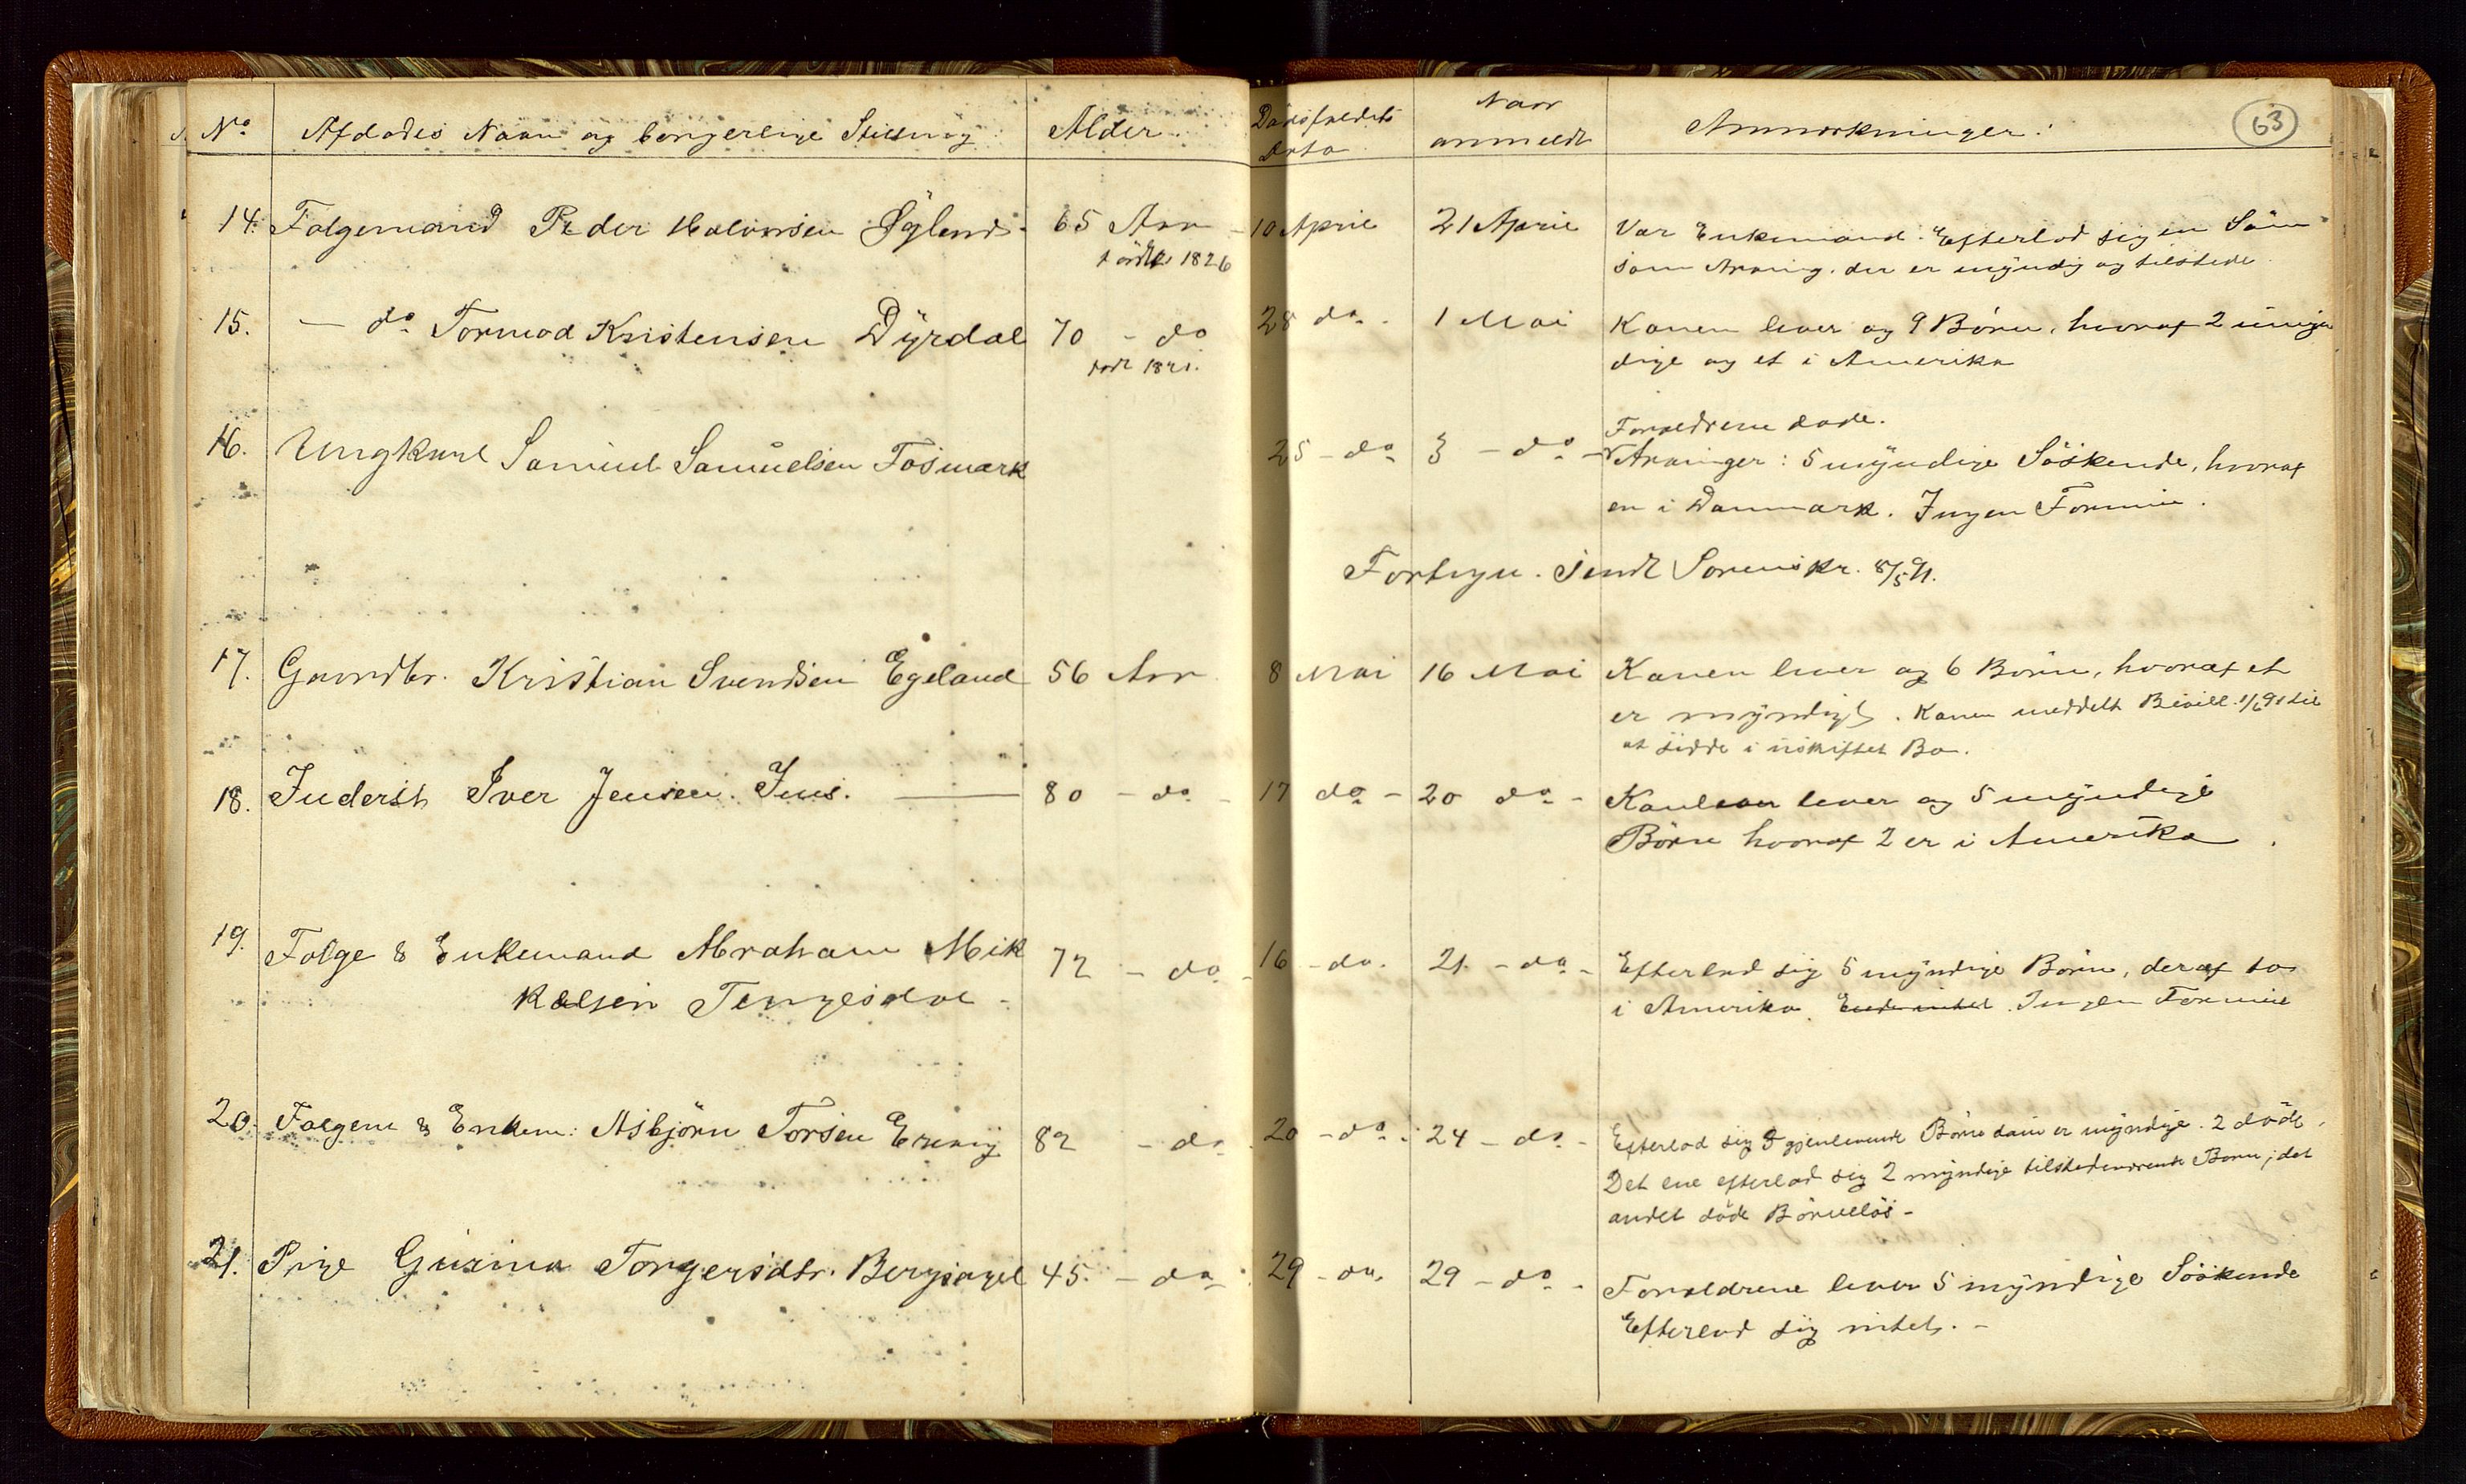 63
No Afdødes Navn og borgerlige Stilling Alder Dødsfaldets Dato Naar anmeldt Anmærkninger.
14. Folgemand Peder Halvorsen Øglend 65 Aar 10 April 21 April Var Enkemand. Efterlod sig en Søn
født 1826 som Arving, der er myndig og tilstede.
15. — do Tormod Kristensen Dyrdal 70 - do 28 do. 1 Mai Konen lever og 9 Børn, hvoraf 2 umyn
født 1821. dige og et i Amerika
Forældrene døde.
16. Ungkarl Samuel Samuelsen Fosmark 25 - do 3 - do - Arvinger: 5 myndige Søskende, hvoraf
en i Danmark. Ingen Formue.
Fortegn. sendt Sorenskr. 8/5 91.
17. Gaardbr. Kristian Svendsen Egeland 56 Aar 8 Mai 16 Mai Konen lever og 6 Børn, hvoraf et
er myndigt. Konen meddelt Bevill. 1/6 91 til
at sidde i uskiftet Bo.
18. Inderst Iver Jensen Ims. — 80 - do - 17 do - 20 do - Konen lever og 5 myndige
Børn hvoraf 2 er i Amerika.
19. Folge & Enkemand Abraham Mik 72 - do - 16 - do. 21. - do - Efterlod sig 5 myndige Børn, deraf to
kelsen Tengesdal - i Amerika. Ingen Formue
20. Folgem & Enkem: Asbjørn Torsen Erevig 82 - do. 20 - do. - 24 - do. - Efterlod sig 5 gjenlevende Børn som er myndige. 2 døde.
Det ene efterlod sig 2 myndige tilstedeværende Børn; det
andet døde Børneløs -
21. Pige Gurina Torgersdtr. Bergsagel 45. - do 29 - do. 29 - do. - Forældrene lever 5 myndige Søskende
Efterlod sig intet. -